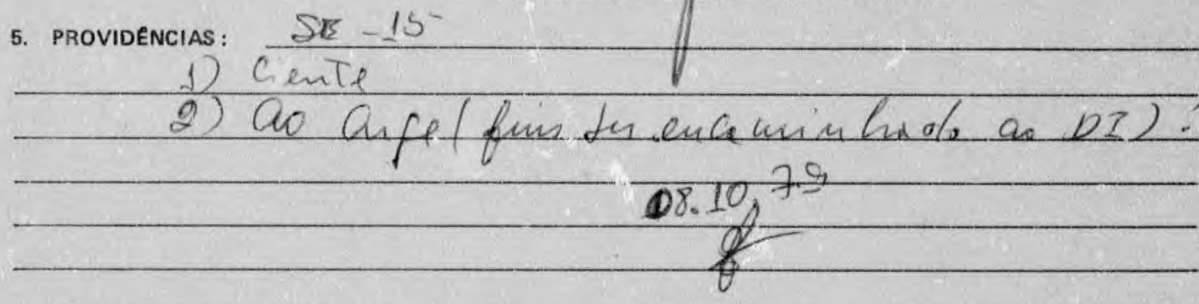 5. PROVIDÊNCIAS: SE - 15
1) Ciente
2) ao (fins ser encaminhado ao DI).
08.10.79